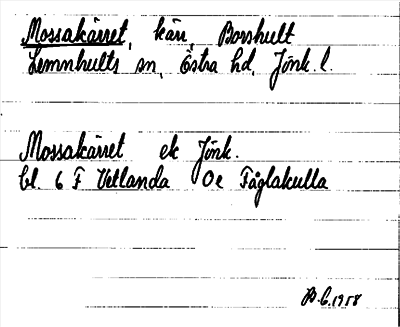 Mossakärret, kärr, Borshult
Lemnhults sn, Östra hd, Jönk. l.
Mossakärret ek Jönk.
bl. 6 F Vetlanda 0e Fåglakulla
1958